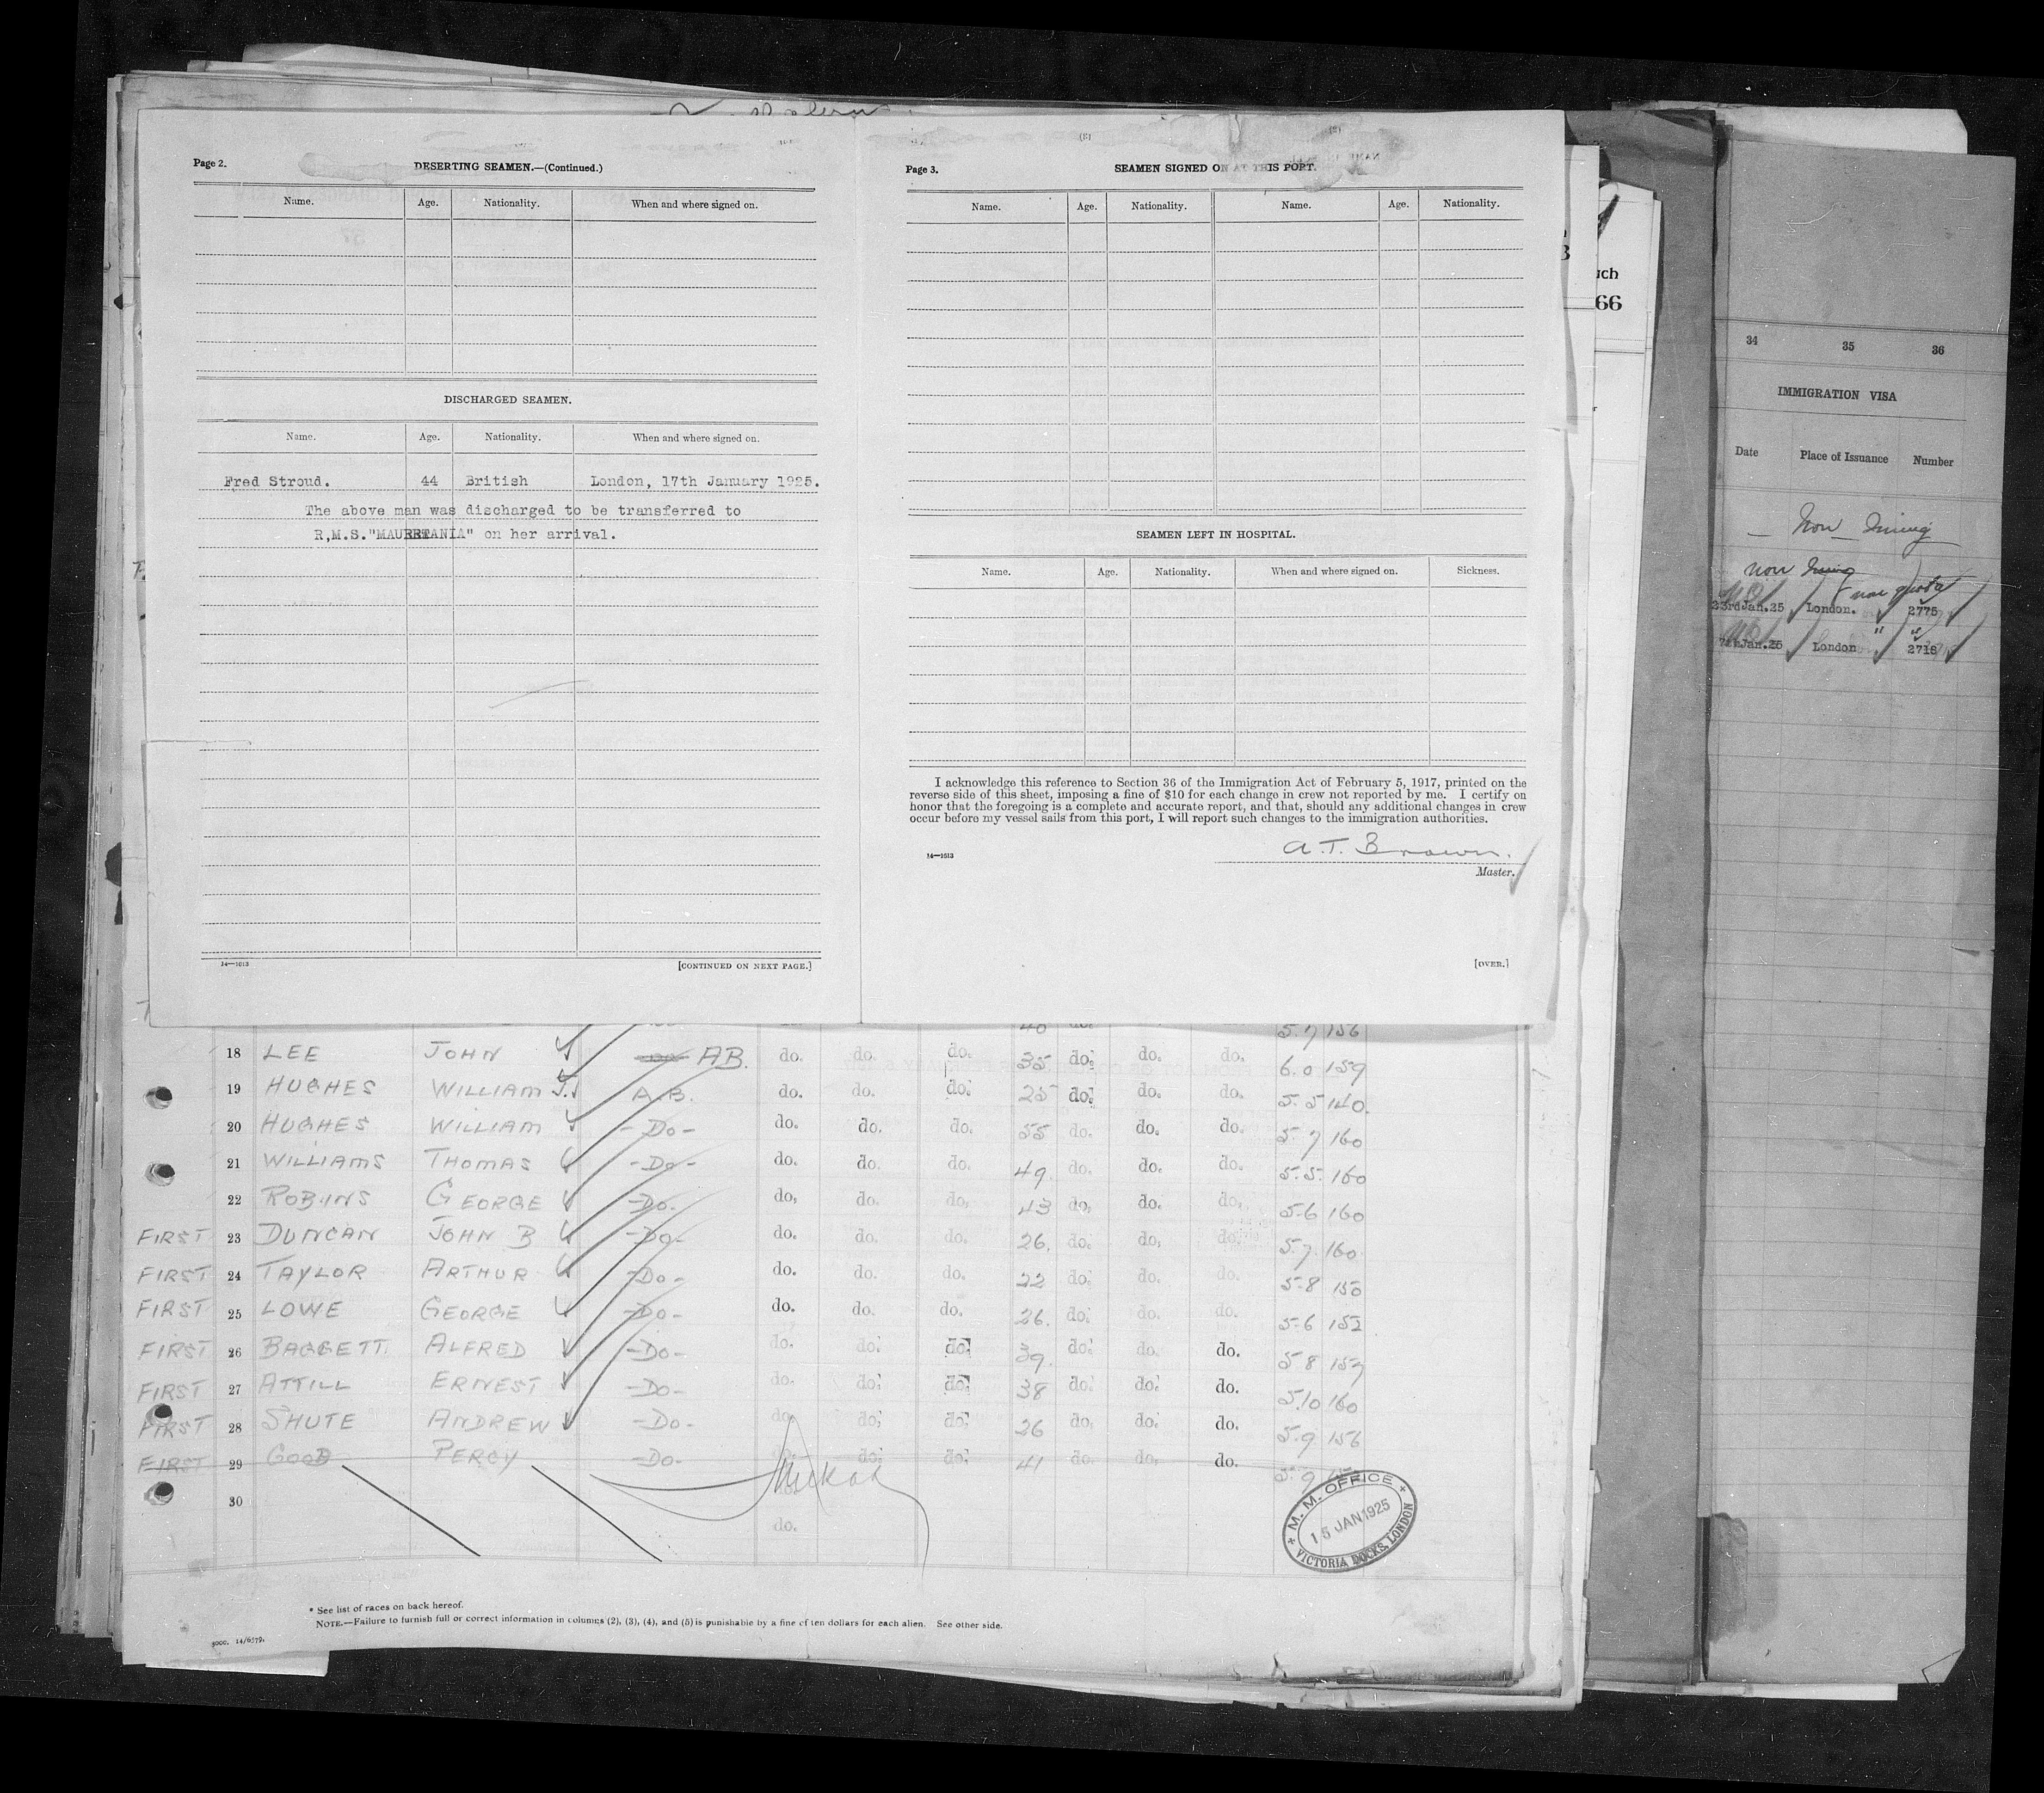 Page 2.
DESERTING SEAMEN.—(Continued.)
Name. Age. Nationality. When and where signed on.
DISCHARGED SEAMEN.
Name. Age. Nationality. When and where signed on.
Fred Stroud. 44 British London, 17th January 1925.
The above man was discharged to be transferred to
R,M.S."MAURETANIA" on her arrival.
14—1613
[CONTINUED ON NEXT PAGE.]
Page 3.
SEAMEN SIGNED ON AT THIS PORT.
Name. Age. Nationality. Name. Age. Nationality.
SEAMEN LEFT IN HOSPITAL.
Name. Age. Nationality. When and where signed on. Sickness.
I acknowledge this reference to Section 36 of the Immigration Act of February 5, 1917, printed on the
reverse side of this sheet, imposing a fine of $10 for each change in crew not reported by me. I certify on
honor that the foregoing is a complete and accurate report, and that, should any additional changes in crew
occur before my vessel sails from this port, I will report such changes to the immigration authorities.
A.T. Brown.
14—1613
Master.
[OVER.]
40 do. 5.7 156
18 LEE JOHN AB. do. do. do. 35 do. do. do. 6.0 159
19 HUGHES WILLIAM J. A.B. do. do. do. 25 do. do. do. 5.5 140.
20 HUGHES WILLIAM -Do- do. do. do. 55 do. do. do. 5.7 160
21 WILLIAMS THOMAS -Do- do. do. do. 49. do. do. do. 5.5. 160
22 ROBINS GEORGE -Do- do. do. do. 43 do. do. do. 5.6 160
FIRST 23 DUNCAN JOHN B -Do- do. do. do. 26. do. do. do. 5.7. 160.
FIRST 24 TAYLOR ARTHUR -Do- do. do. do. 22 do. do. do. 5-8 150
FIRST 25 LOWE GEORGE -Do- do. do. do. 26. do. do. do. 5-6 152
FIRST 26 BAGGETT. ALFRED -Do- do. do. do. 39. do. do. do. 5 8 157
FIRST 27 ATTILL ERNEST -Do- do. do. do. 38 do. do. do. 5.10 160
FIRST 28 SHUTE ANDREW -Do- do. do. do. 26 do. do. do. 5.9 156
FIRST 29 GOOD PERCY -Do- do. do. do. 41 do. do. do. 5.9
30
do.
M. M. OFFICE
15 JAN 1925
VICTORIA DOCKS, LONDON
* See list of races on back hereof.
NOTE.—Failure to furnish full or correct information in columns (2), (3), (4), and (5) is punishable by a fine of ten dollars for each alien. See other side.
5000. 14/6579.
uch
66
34 35 36
IMMIGRATION VISA
Date Place of Issuance Number
Non Immig
Non Immig
non quota
23rd Jan. 25 London. 2775
7th Jan. 25 London " " 2718